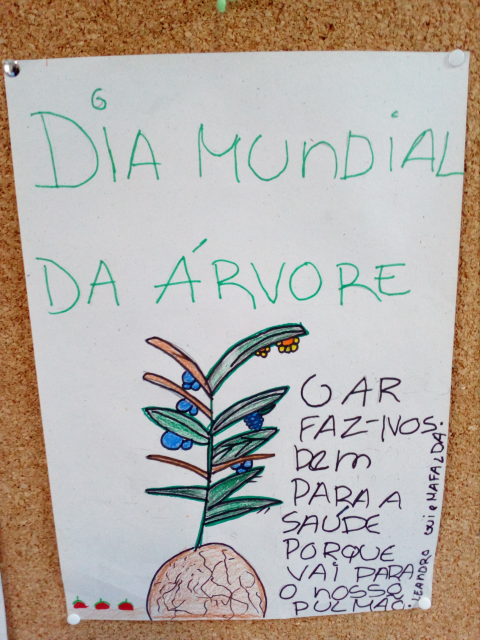 DIA MUNDIAL
DA ÁRVORE
O AR
FAZ-NOS
BEM
PARA A
SAÚDE
PORQUE
VAI PARA
O NOSSO
PULMÃO.
LEANDRO E MAFALDA.